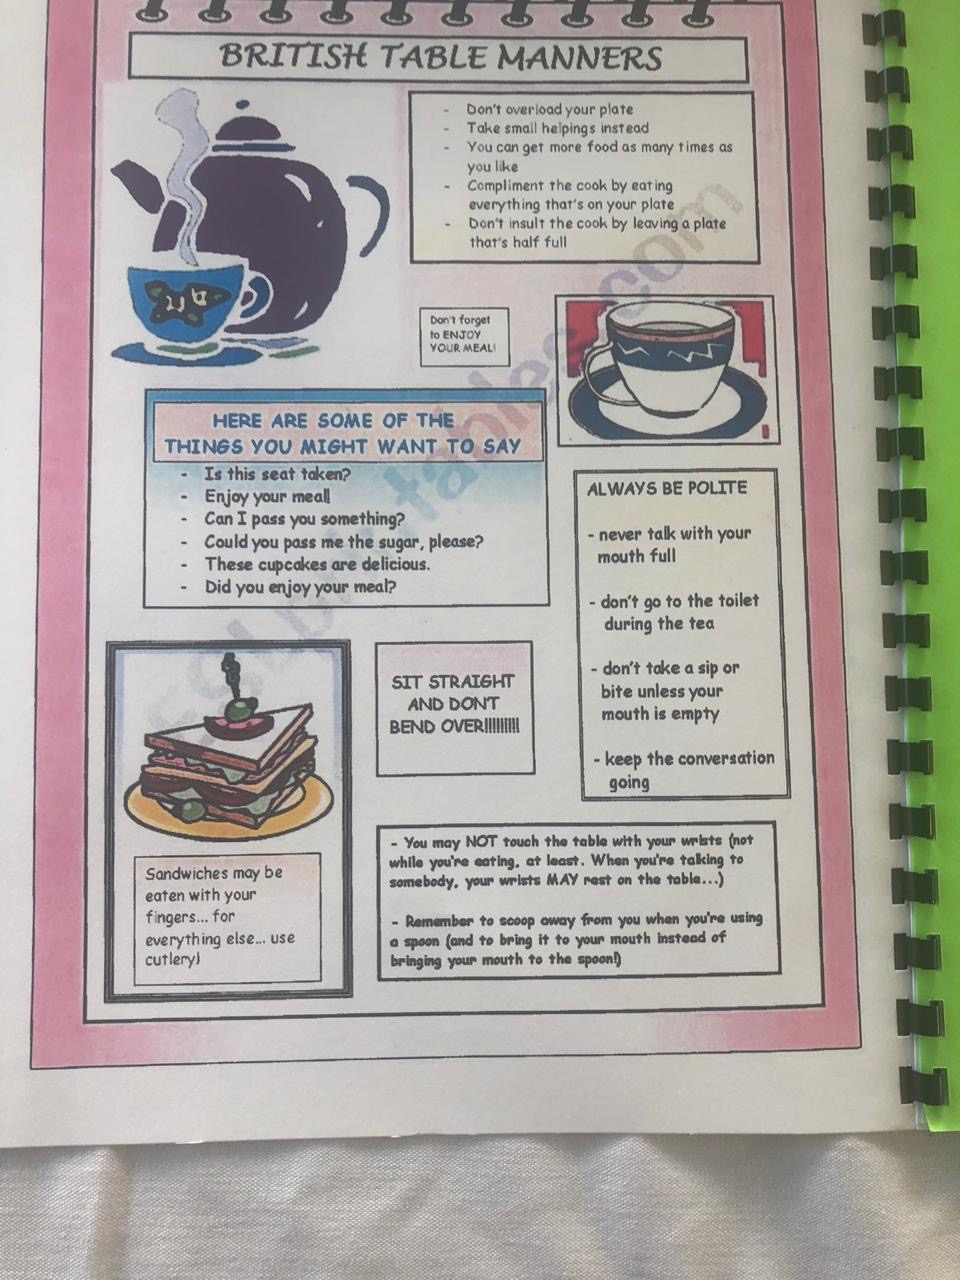 BRITISH TABLE MANNERS
- Don't overload your plate
- Take small helpings instead
- You can get more food as many times as
you like
- Compliment the cook by eating
everything that's on your plate
- Don't insult the cook by leaving a plate
that's half full
Don't forget
to ENJOY
YOUR MEAL!
HERE ARE SOME OF THE
THINGS YOU MIGHT WANT TO SAY
- Is this seat taken?
- Enjoy your meal!
- Can I pass you something?
- Could you pass me the sugar, please?
- These cupcakes are delicious.
- Did you enjoy your meal?
ALWAYS BE POLITE
- never talk with your
mouth full
- don't go to the toilet
during the tea
- don't take a sip or
bite unless your
mouth is empty
- keep the conversation
going
SIT STRAIGHT
AND DON'T
BEND OVER!!!!!!!!!
Sandwiches may be
eaten with your
fingers... for
everything else... use
cutlery!
- You may NOT touch the table with your wrists (not
while you're eating, at least. When you're talking to
somebody, your wrists MAY rest on the table...)
- Remember to scoop away from you when you're using
a spoon (and to bring it to your mouth instead of
bringing your mouth to the spoon!)
ESLprintables.com